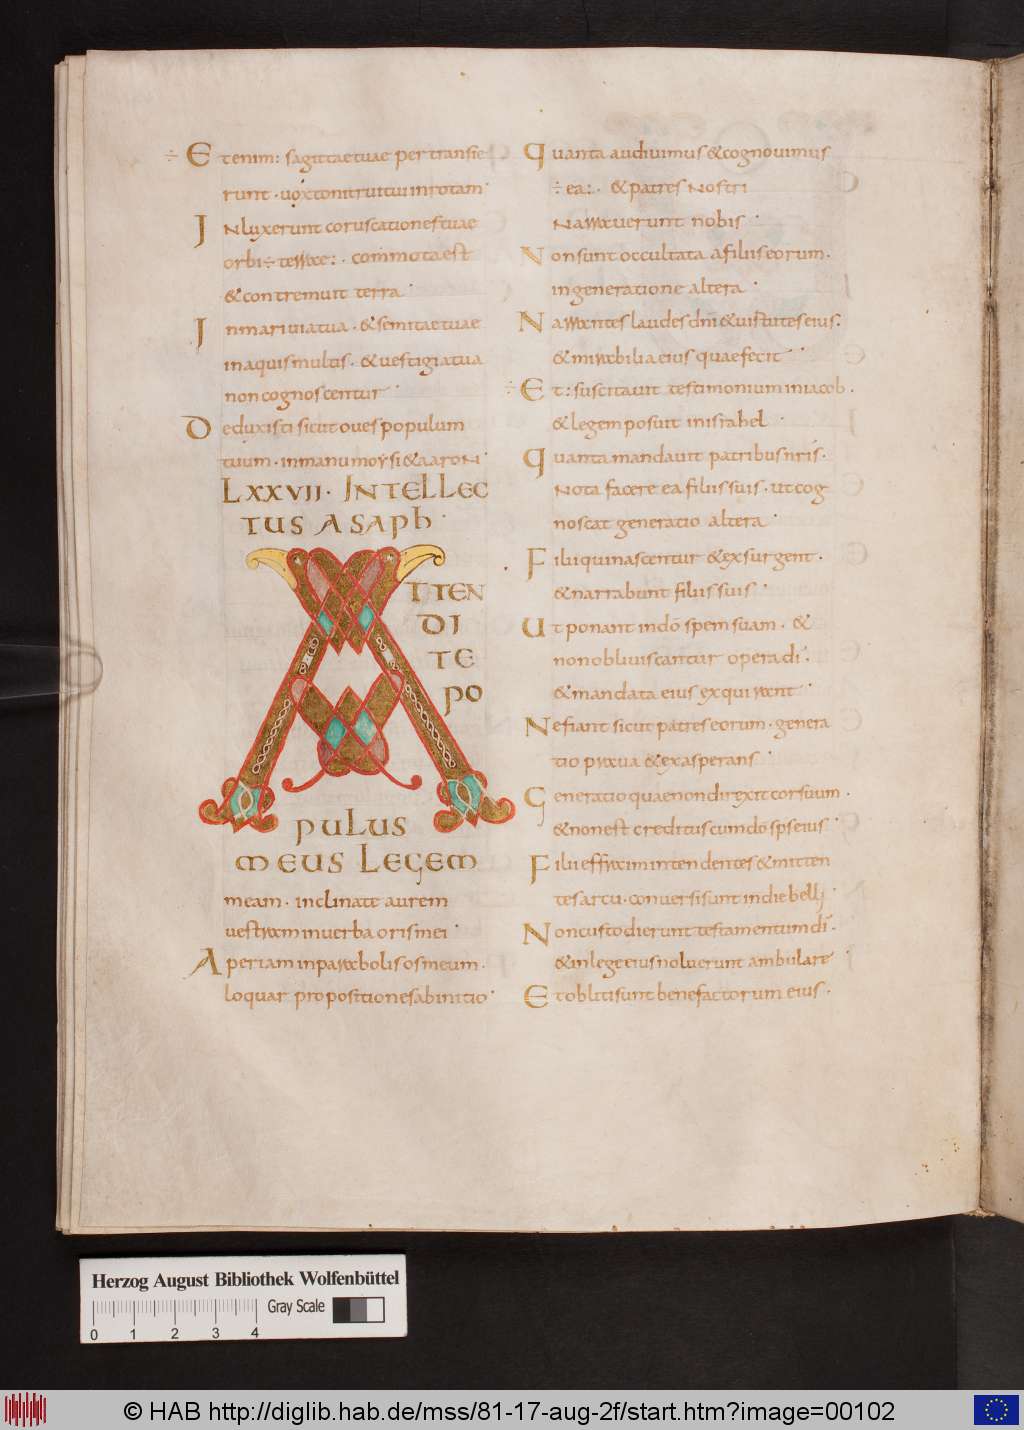 ÷ Etenim: sagittae tuae pertransie
runt · vox tonitrui tui in rotam ·
Inluxerunt coruscationes tuae
orbi ÷ terrae: · commota est
& contremuit terra ·
In mari via tua · & semitae tuae
in aquis multis · & vestigia tua
non cognoscentur ·
Deduxisti sicut oves populum
tuum · in manu moysi & aaron ·
LXXVII · INTELLEC
TUS ASAPH ·
ATTEN
DI
TE
PO
PULUS
MEUS LEGEM
meam · inclinate aurem
vestram in verba oris mei ·
Aperiam in parabolis os meum ·
loquar propositiones ab initio ·
Quanta audivimus & cognovimus
÷ ea: · & patres nostri
narraverunt nobis ·
Non sunt occultata a filiis eorum ·
in generatione altera ·
Narrantes laudes dñi & virtutes eius:
& mirabilia eius quae fecit ·
÷ Et: suscitavit testimonium in iacob ·
& legem posuit in israhel ·
Quanta mandavit patribus nris ·
nota facere ea filiis suis · ut cog
noscat generatio altera ·
Filii qui nascentur & exsurgent ·
& narrabunt filiis suis ·
Ut ponant in dō spem suam · &
non obliviscantur opera dī ·
& mandata eius exquirant ·
Ne fiant sicut patres eorum · genera
tio prava & exasperans ·
Generatio quae non direxit cor suum ·
& non est creditus cum dō sps eius ·
Filii effraem intendentes & mitten
tes arcu · conversi sunt in die belli
Non custodierunt testamentum dī ·
& in lege eius noluerunt ambulare
Et obliti sunt benefactorum eius ·
Herzog August Bibliothek Wolfenbüttel
Gray Scale
0 1 2 3 4
© HAB http://diglib.hab.de/mss/81-17-aug-2f/start.htm?image=00102